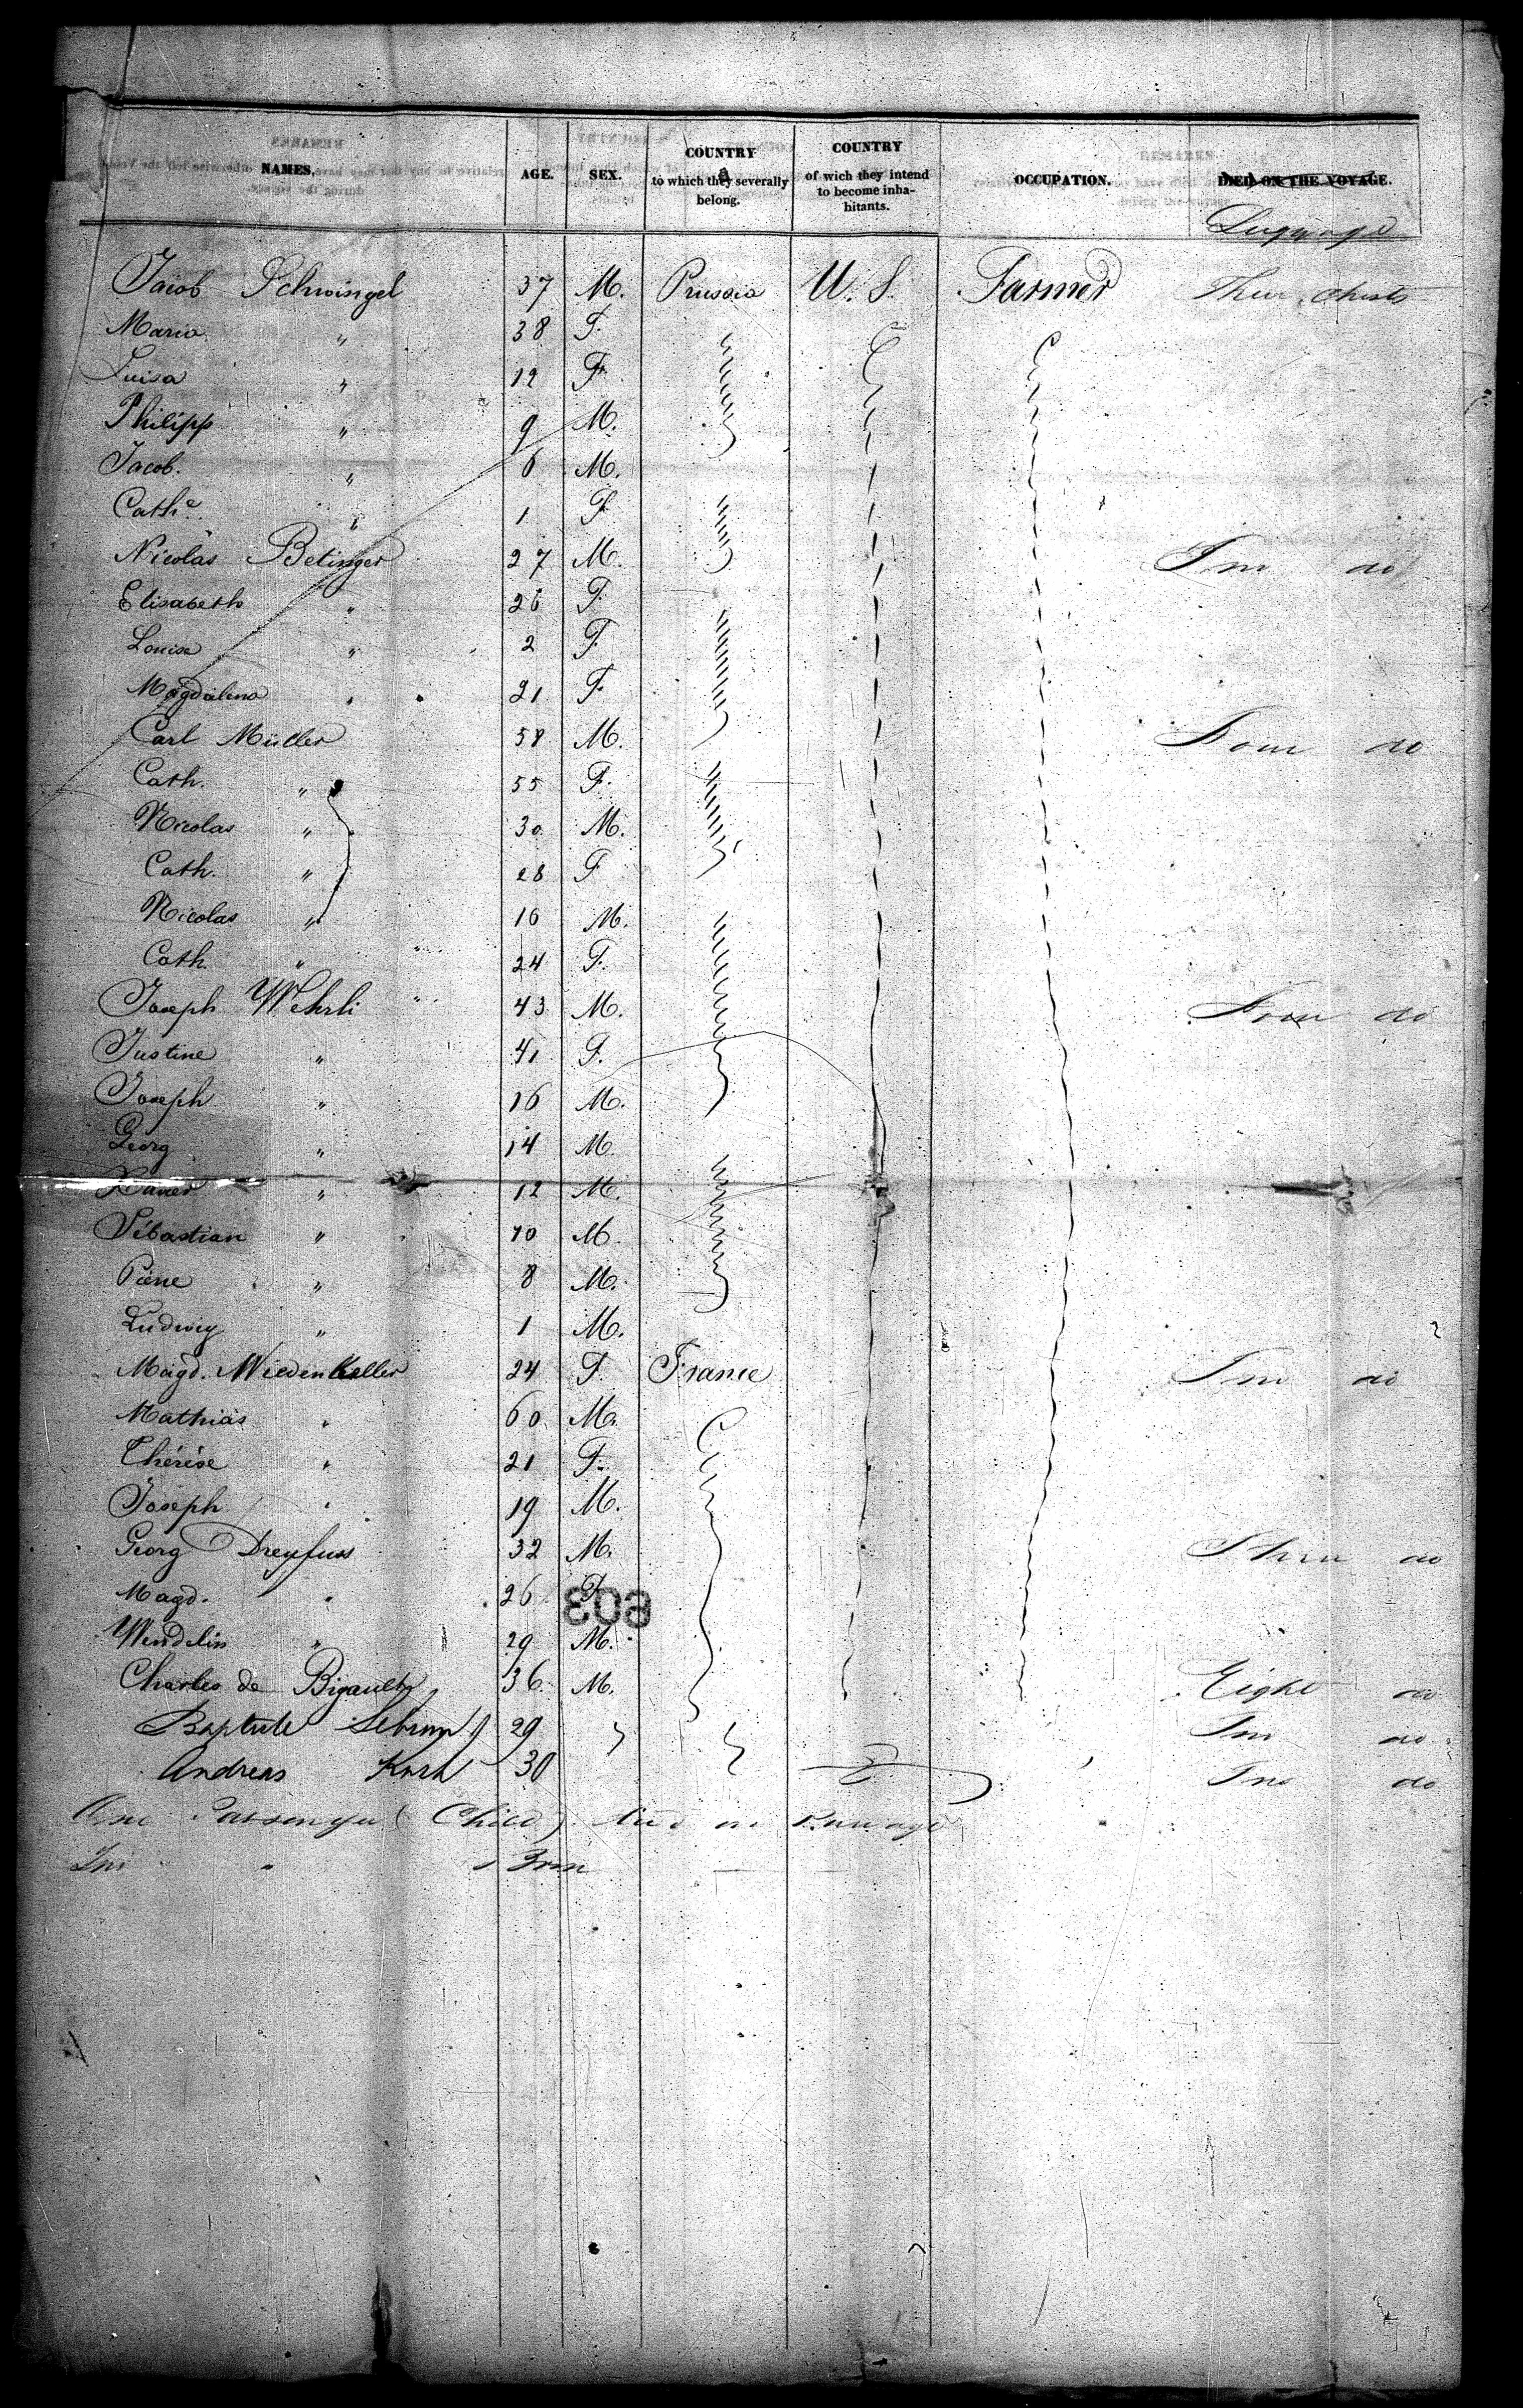 NAMES. AGE. SEX. COUNTRY to which they severally belong. COUNTRY of wich they intend to become inhabitants. OCCUPATION. DIED ON THE VOYAGE.
Luggage
Jacob Schwingel 37 M. Prussia U. S. Farmer Three chests
Maria " 38 F.
Luisa " 12 F.
Philipp " 9 M.
Jacob. " 6 M.
Cathe " 1 F
Nicolas Betinger 27 M. Two do
Elisabeth " 26 F.
Louise " 2 F
Magdalena " 21 F.
Carl Müller 58 M. Four do
Cath. " 55 F.
Nicolas " 30 M.
Cath. " 28 F
Nicolas " 16 M.
Cath. " 24 F.
Joseph Wehrli 43 M. Four do
Justine " 41 F.
Joseph " 16 M.
Georg " 14 M.
Xaver " 12 M.
Sébastian " 10 M.
Piere " 8 M.
Ludwig " 1 M.
Magd. Miedenkeller 24 F. France Two do
Mathias " 60 M.
Thérèse " 21 F.
Joseph " 19 M.
Georg Dreyfuss 32 M. Three do
Magd. " 26 F.
603
Wendelin " 29 M.
Charles de Bigault 36 M. Eight do
Baptiste 29 Two do
Andreas 30 Two do
One Passenger (Child) died on Passage
Two " " Born